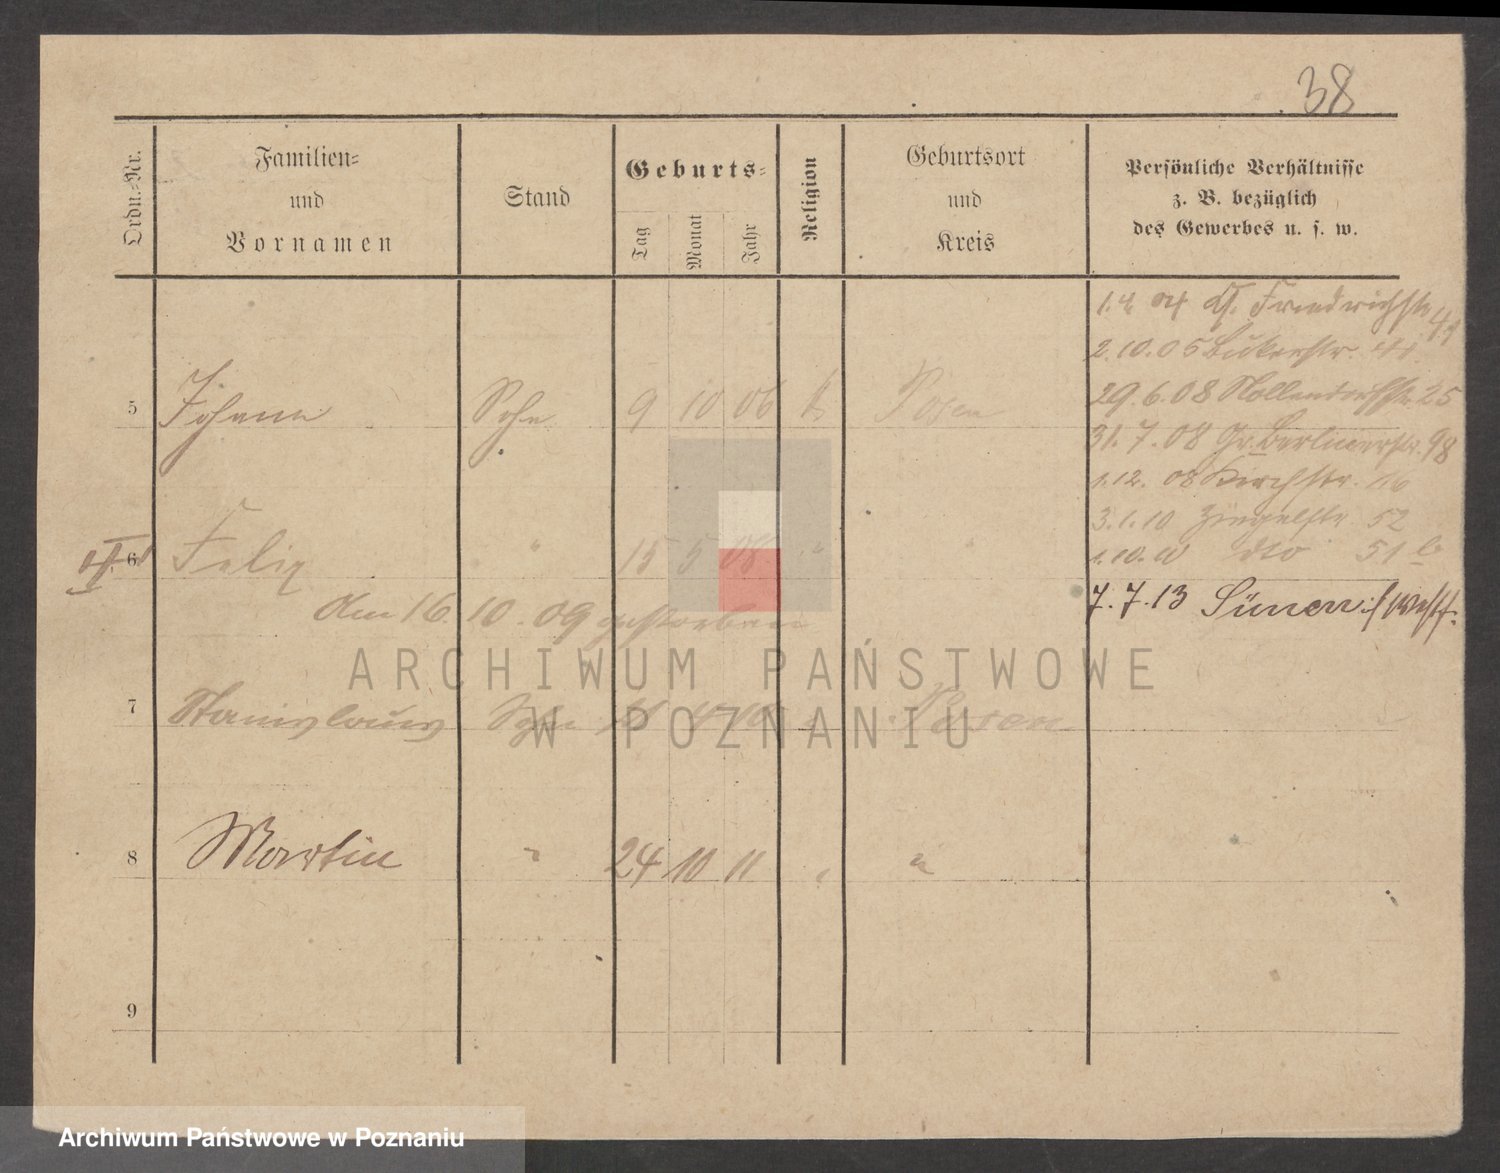 38
Ordn.-Nr.
Familien-
und
Vornamen
Stand
Geburts-
Tag
Monat
Jahr
Religion
Geburtsort
und
Kreis
Persönliche Verhältnisse
z. B. bezüglich
des Gewerbes u. s. w.
1.4.04 Friedrichstr.
2.10.05 Bukerstr.
5 Johann Sohn 9 10 06 k Posen
29.6.08 Nollendorfstr. 25
31.7.08 Gr. Berlinerstr. 98
1.12.08 Kirchstr.
3.1.10 Ziegelstr. 52
6 Felix " 15 5 08 " "
1.10.10 dto 51 b
7.7.13 Sünen i/Westf.
Am 16. 10. 09 gestorben
ARCHIWUM PAŃSTWOWE
W POZNANIU
7 Stanislaus Sohn 4 10 Posen
8 Martin " 24 10 11 " "
9
Archiwum Państwowe w Poznaniu